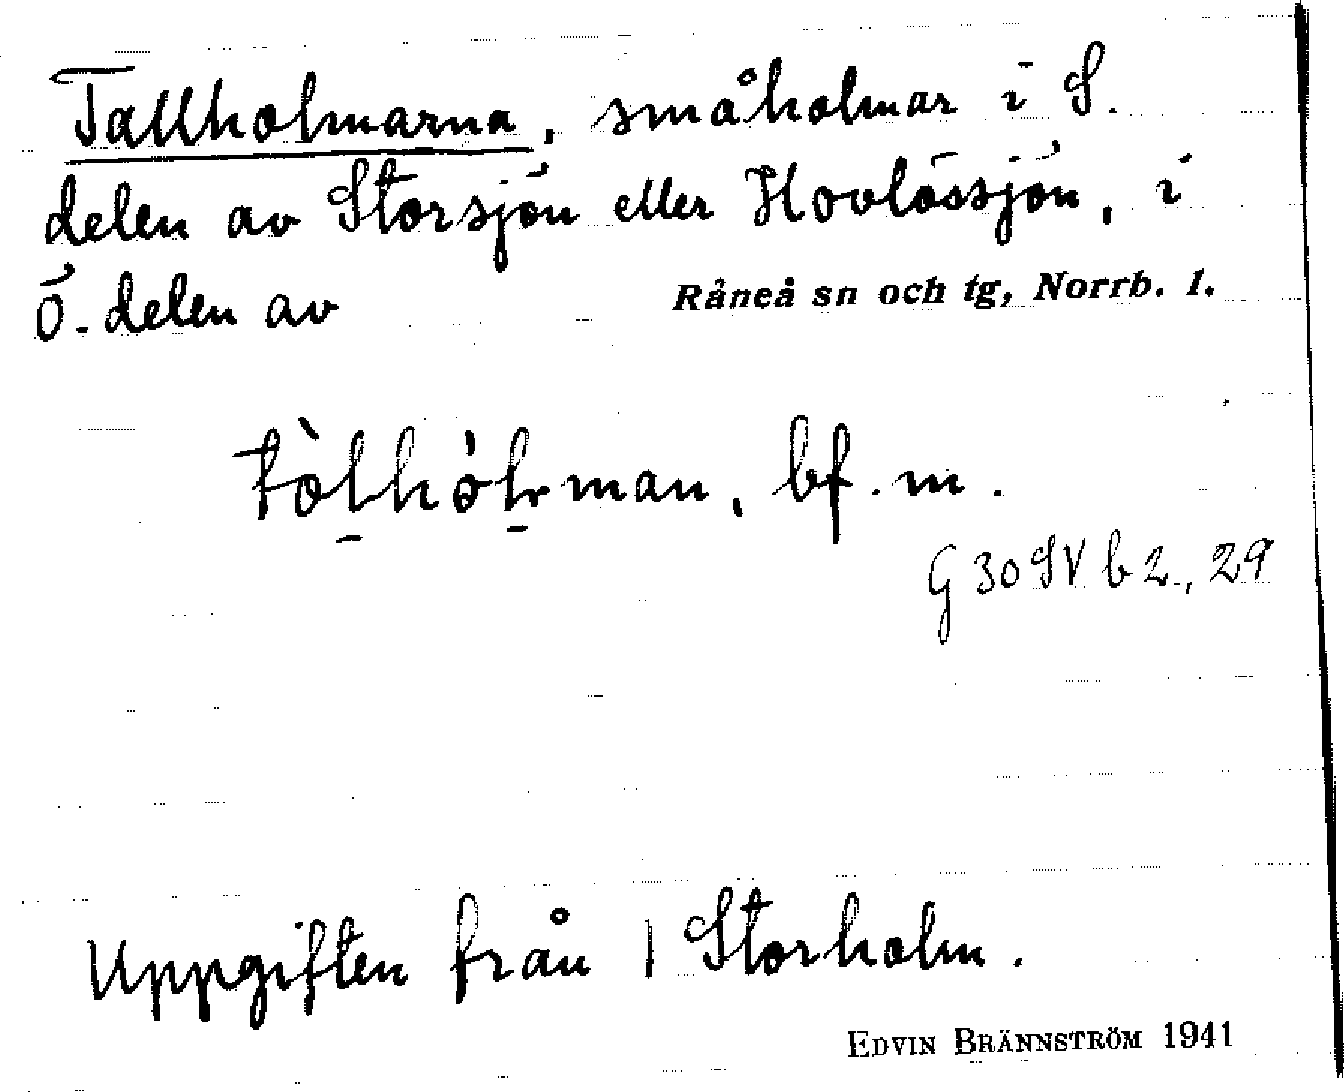 Tallholmarna, småholmar i S.
delen av Storsjön eller Hovlössjön, i
Ö. delen av Råneå sn och tg, Norrb. l.
bf. m.
G 30 SV b 2, 29
Uppgiften från 1 Storholm.
EDVIN BRÄNNSTRÖM 1941